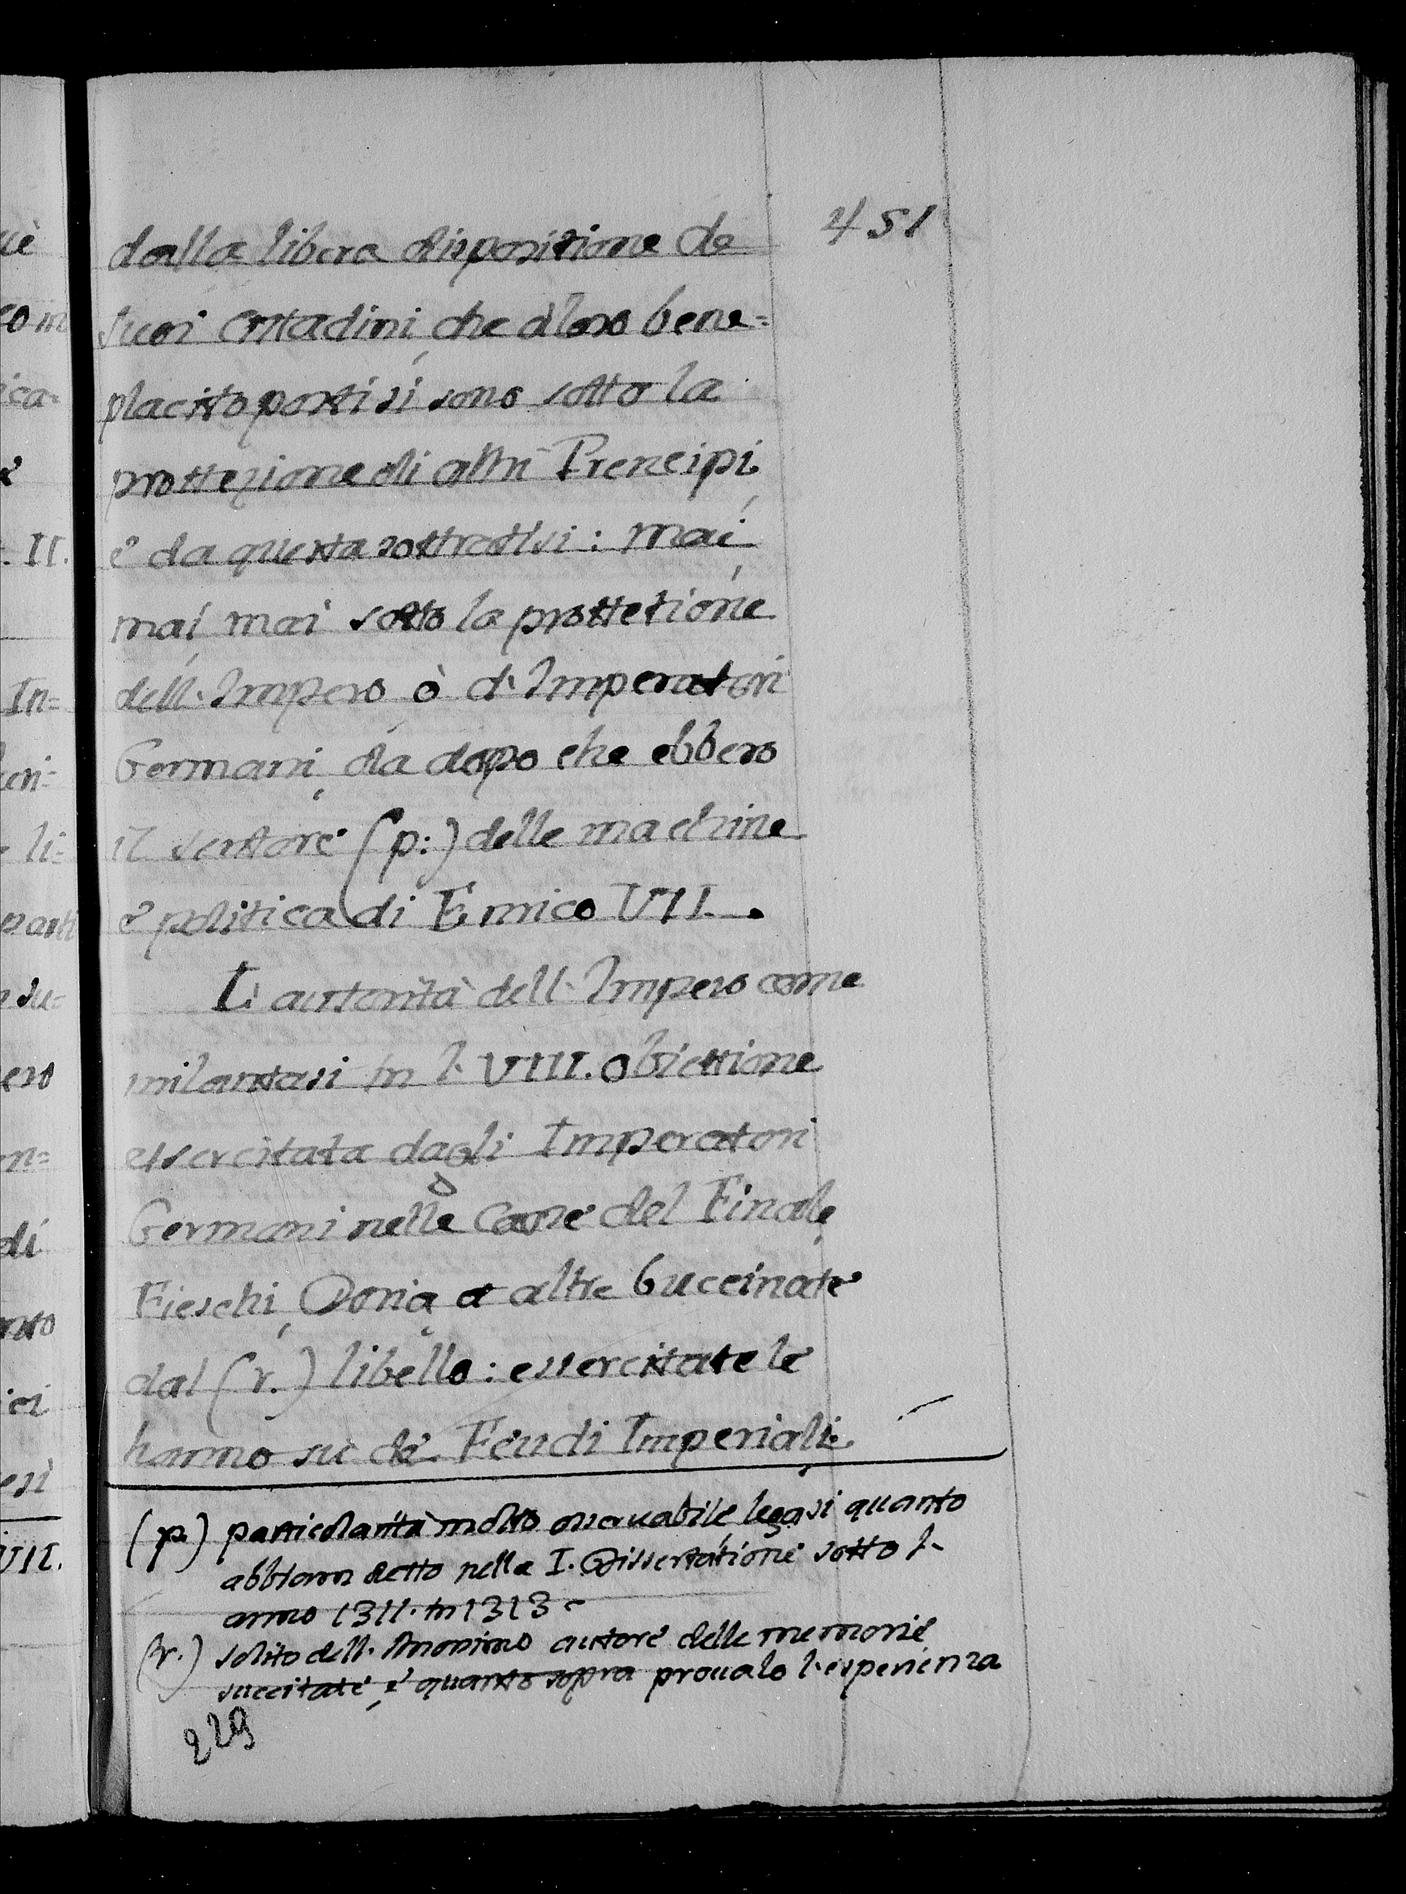 451
dalla libera dispositione de
suoi Cittadini che à loro bene=
placito posti si sono sotto la
prottezione di altri Prencipi,
e da questa sottratisi: mai,
mai mai sotto la prottetione
dell. Impero ò d. Imperatori
Germani, da dopo che ebbero
il sentore (p:) delle machine
e politica di Enrico VII.
L. autorità dell. Impero come
milantasi in l. VIII. obiettione
essercitata dagli Imperatori
Germani nelle Case del Finale,
Fieschi, Doria, e altre buccinate
dal (r.) libello: essercitate le
hanno sù de. Feudi Imperiali.
(p.) particolarità molto osservabile legasi quanto
abbiam detto nella I. Dissertatione sotto l.
anno 1311. in 1313.
(r.) solito dell. Anonimo autore delle memorie
succitate, e quanto sopra provalo l. esperienza
229